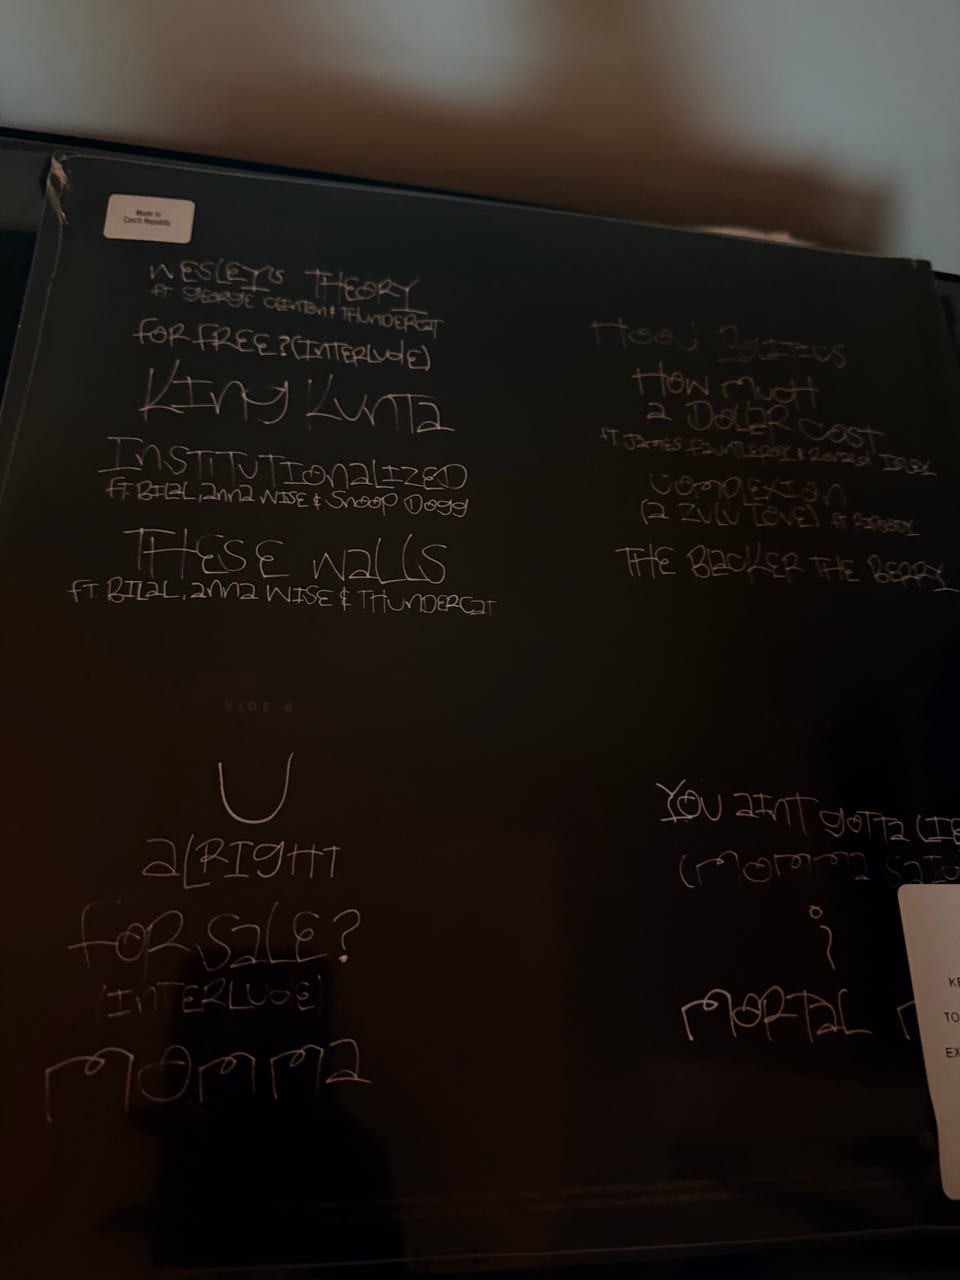 Made in
Czech Republic
WESLEY'S THEORY
ft GEORGE CLINTON & THUNDERCAT
FOR FREE? (INTERLUDE)
KING KUNTA
INSTITUTIONALIZED
ft. BILAL, anna WISE & Snoop Dogg
THESE WALLS
ft. BILAL, anna WISE & THUNDERCAT
SIDE B
U
ALRIGHT
FOR SALE?
(INTERLUDE)
MOMMA
HOOD POLITICS
HOW MUCH
A DOLLAR COST
ft JAMES FAUNTLEROY & RONALD ISLEY
COMPLEXION
(A ZULU LOVE) ft
THE BLACKER THE BERRY
YOU AINT GOTTA LIE
(MOMMA SAID
i
MORTAL
KE
TO
EX